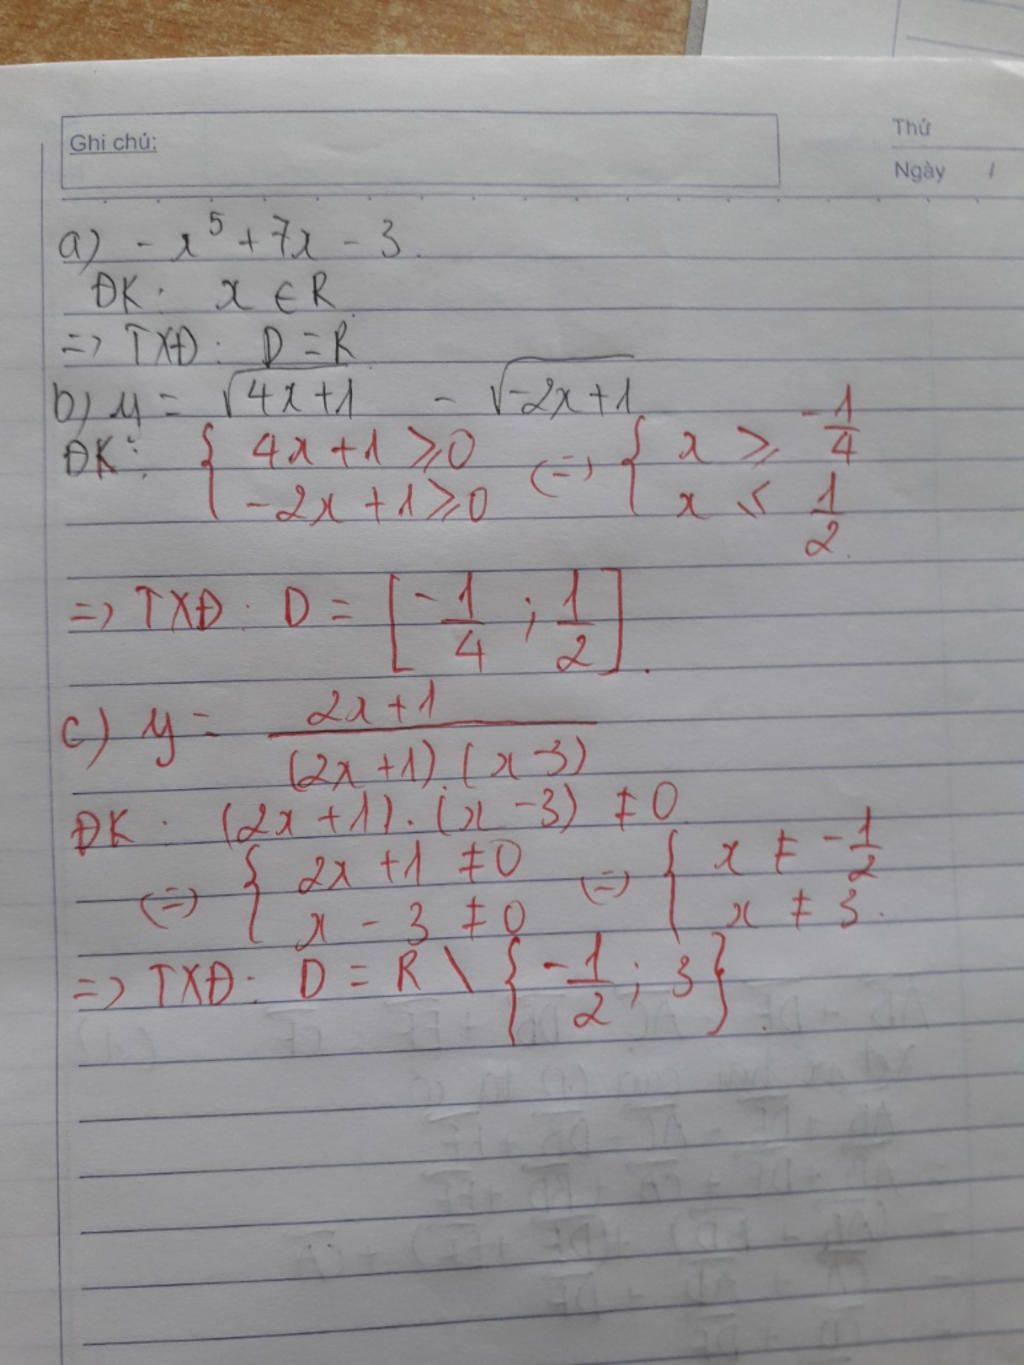 Ghi chú:
Thứ
Ngày /
a) - x⁵ + 7x - 3.
ĐK: x ∈ R
=> TXĐ: D = R
b) y = √4x+1 - √-2x+1
ĐK: { 4x+1 ⩾ 0 (=) { x ⩾ -1/4
-2x+1 ⩾ 0 x ⩽ 1/2.
=> TXĐ: D = [-1/4 ; 1/2].
c) y = 2x+1 / (2x+1).(x-3)
ĐK: (2x+1).(x-3) ≠ 0
(=) { 2x+1 ≠ 0 (=) { x ≠ -1/2
x - 3 ≠ 0 x ≠ 3.
=> TXĐ: D = R \ {-1/2 ; 3}.